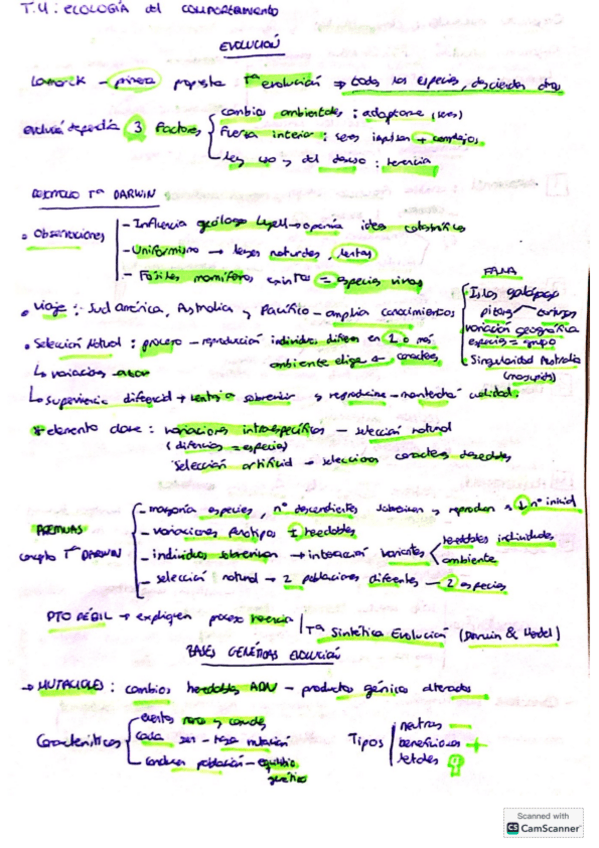 T.4: ECOLOGÍA del COMPORTAMIENTO
EVOLUCIÓN
Lamarck - primera propuesta Tª evolución ⇒ todas las especies, descienden otras
evolución dependía 3 factores
cambios ambientales : adaptarse (seres)
fuerza interior : seres impulsan + complejos
ley uso y del desuso : herencia
DESARROLLO Tª DARWIN
• Observaciones
- Influencia geólogo Lyell → oponía ideas catastróficas
- Uniformismo → leyes naturales, lentas
- Fósiles mamíferos extintos = especies vivas
FAUNA
Islas galápagos
pinzones tortugas
variación geográfica
especies = grupo
Singularidad Australia
(marsupiales)
• Viaje : Sud América, Australia y Pacífico - amplia conocimientos
• Selección Natural : proceso - reproducción individuos difieren en 1 o más caracteres
ambiente elige
↳ variaciones azar
↳ Supervivencia diferencial → ventaja sobrevivir y reproducirse - mantendrá cualidad.
* elemento clave : variaciones intraespecíficas - selección natural
(diferencias = especie)
selección artificial → selecciona caracteres deseables
PREMISAS
concepto Tª DARWIN
- mayoría especies, nº descendientes sobreviven y reproducen a nº inicial
- variaciones fenotipos heredables
- individuos sobreviven → interacción variantes
heredables individuales
ambiente
- selección natural → 2 poblaciones diferentes - 2 especies
PTO DÉBIL → expliquen proceso herencia | Tª Sintética Evolución (Darwin & Mendel)
BASES GENÉTICAS EVOLUCIÓN
→ MUTACIONES : cambios heredables ADN - productos génicos alterados
Características
eventos raros y
cada ser - tasa mutación
conducen población - equilibrio genético
Tipos
neutras -
beneficiosas +
letales
Scanned with
CS CamScanner